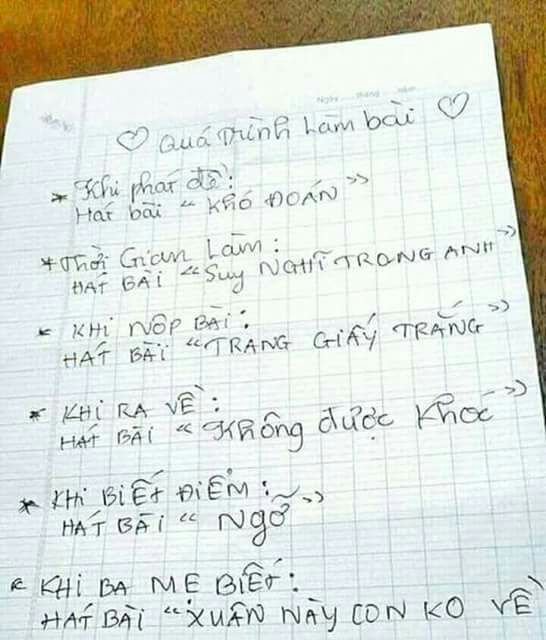 Ngày tháng năm
♡ Quá trình làm bài ♡
* Khi phát đề:
Hát bài "KHÓ ĐOÁN"
* Thời Gian Làm:
HÁT BÀI "Suy NGHĨ TRONG ANH"
* KHI NỘP BÀI:
HÁT BÀI "TRANG GIẤY TRẮNG"
* KHI RA VỀ:
HÁT BÀI "Không được khóc"
* KHI BIẾT ĐIỂM:
HÁT BÀI "Ngỡ"
* KHI BA MẸ BIẾT:
HÁT BÀI "XUÂN NÀY CON KO VỀ